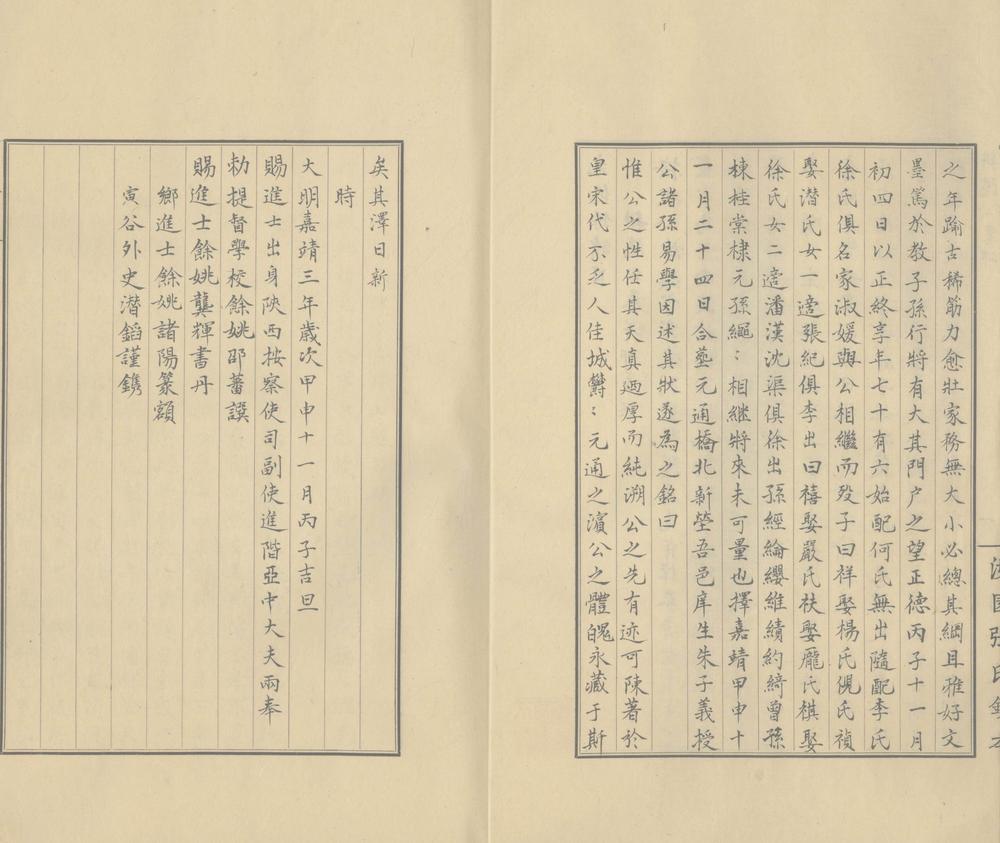 之年踰古稀筋力愈壯家務無大小必總其綱且雅好文
墨篤於敎子孫行將有大其門户之望正德丙子十一月
初四日以正終享年七十有六始配何氏無出隨配李氏
徐氏俱名家淑媛與公相繼而歿子曰祥娶楊氏倪氏禎
娶潛氏女一適張紀俱李出曰禧娶嚴氏扶娶龐氏祺娶
徐氏女二適潘漢沈渠俱徐出孫經綸纓維績約綺曾孫
棟桂棠棣元孫繩〻相継將來未可量也擇嘉靖甲申十
一月二十四日合塟元通橋北新塋吾邑庠生朱子義授
公諸孫易學因述其狀遂為之銘曰
惟公之性任其天真廼厚而純溯公之先有迹可陳著於
皇宋代不乏人佳城欝〻元通之濱公之體魄永藏于斯
矣其澤日新
時
大明嘉靖三年歲次甲申十一月丙子吉旦
賜進士出身陝西按察使司副使進階亞中大夫兩奉
勅提督學校餘姚邵蕃譔
賜進士餘姚龔輝書丹
鄉進士餘姚諸陽篆額
寅谷外史潛鎦謹鐫